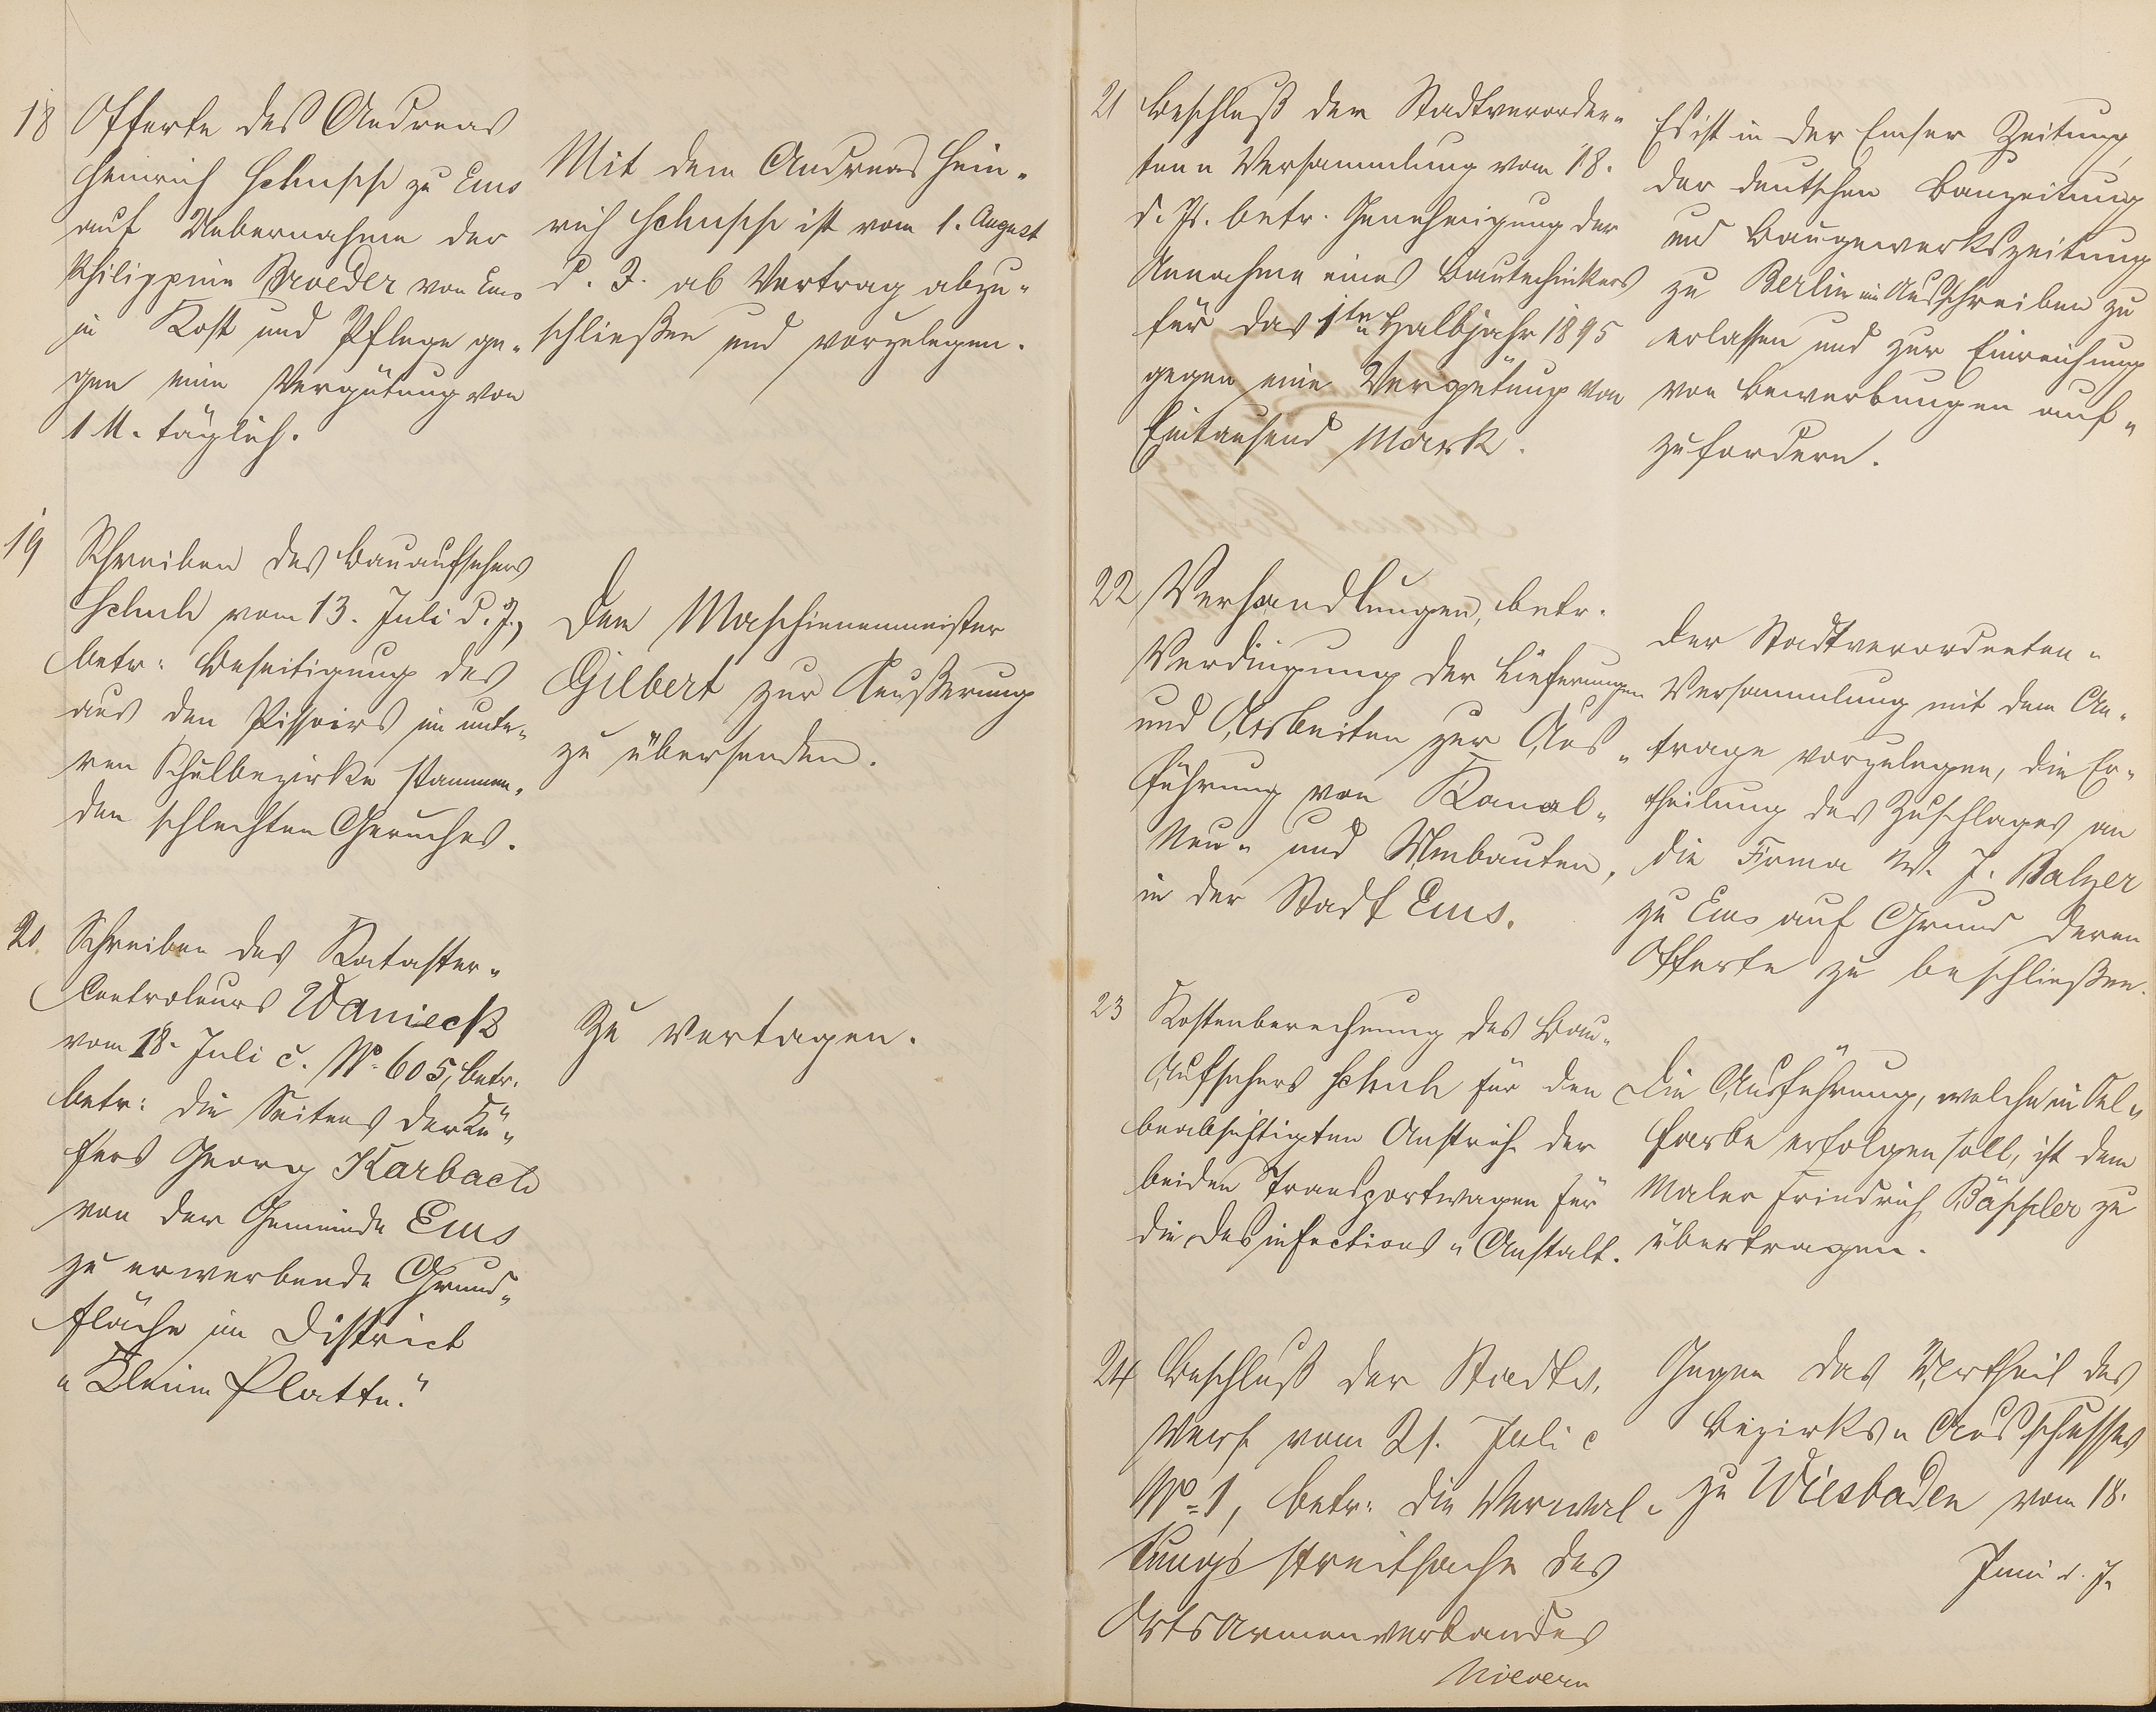 18 Offerte des Andreas
Heinrich Schupp zu Ems
auf Uebernahme der
Philippine Broeder von Ems
in Kost und Pflege ge-
gen eine Vergütung von
1 M. täglich.
Mit dem Andreas Hein-
rich Schupp ist vom 1. August
d. J. ab Vertrag abzu-
schließen und vorzulegen.
19 Schreiben des Bauaufsehers
Schuh vom 13. Juli d. J.,
betr: Beseitigung des
aus den Pissoirs im unte-
ren Schulbezirke stammen-
den schlechten Geruches.
Dem Maschienenmeister
Gilbert zur Aeußerung
zu übersenden.
20. Schreiben des Kataster-
Controleurs Wanieck
vom 18. Juli c. No. 605, betr.
betr: die Seitens der Kü-
fers Georg Karbach
von der Gemeinde Ems
zu erwerbende Grund-
fläche im District
"Kleine Platte."
Zu vertagen.
21 Beschluß der Stadtverordne-
ten- Versammlung vom 18.
d. Js. betr. Genehmigung der
Annahme eines Bautechnikers
für das 1te Halbjahr 1895
gegen eine Vergütung von
Eintausend Mark.
Es ist in der Emser Zeitung,
der deutschen Bauzeitung
und Baugewerkszeitung
zu Berlin ein Ausschreiben zu
erlassen und zur Einreichung
von Bewerbungen auf-
zufordern.
22 Verhandlungen, betr.
Verdingung der Lieferungen
und Arbeiten zur Aus-
führung von Kanal-
Neu- und Umbauten,
in der Stadt Ems.
Der Stadtverordneten-
Versammlung mit dem An-
trage vorzulegen, die Er-
theilung des Zuschlages an
die Firma W. J. Balzer
zu Ems auf Grund deren
Offerte zu beschließen.
23 Kostenberechnung des Bau-
Aufsehers Schuh für den
beabsichtigten Anstrich der
beiden Transportwagen für
die Desinfections-Anstalt.
Die Ausführung, welche in Oel-
farbe erfolgen soll, ist dem
Maler Friedrich Bäppler zu
übertragen.
24 Beschluß der Stadtv.
Vers. vom 21. Juli c
No. 1, betr: die Verwal-
tungsstreitsache des
Ortsarmenverbandes
Nievern
Gegen das Urtheil des
Bezirks-Ausschusses
zu Wiesbaden vom 18.
Juni d. J.